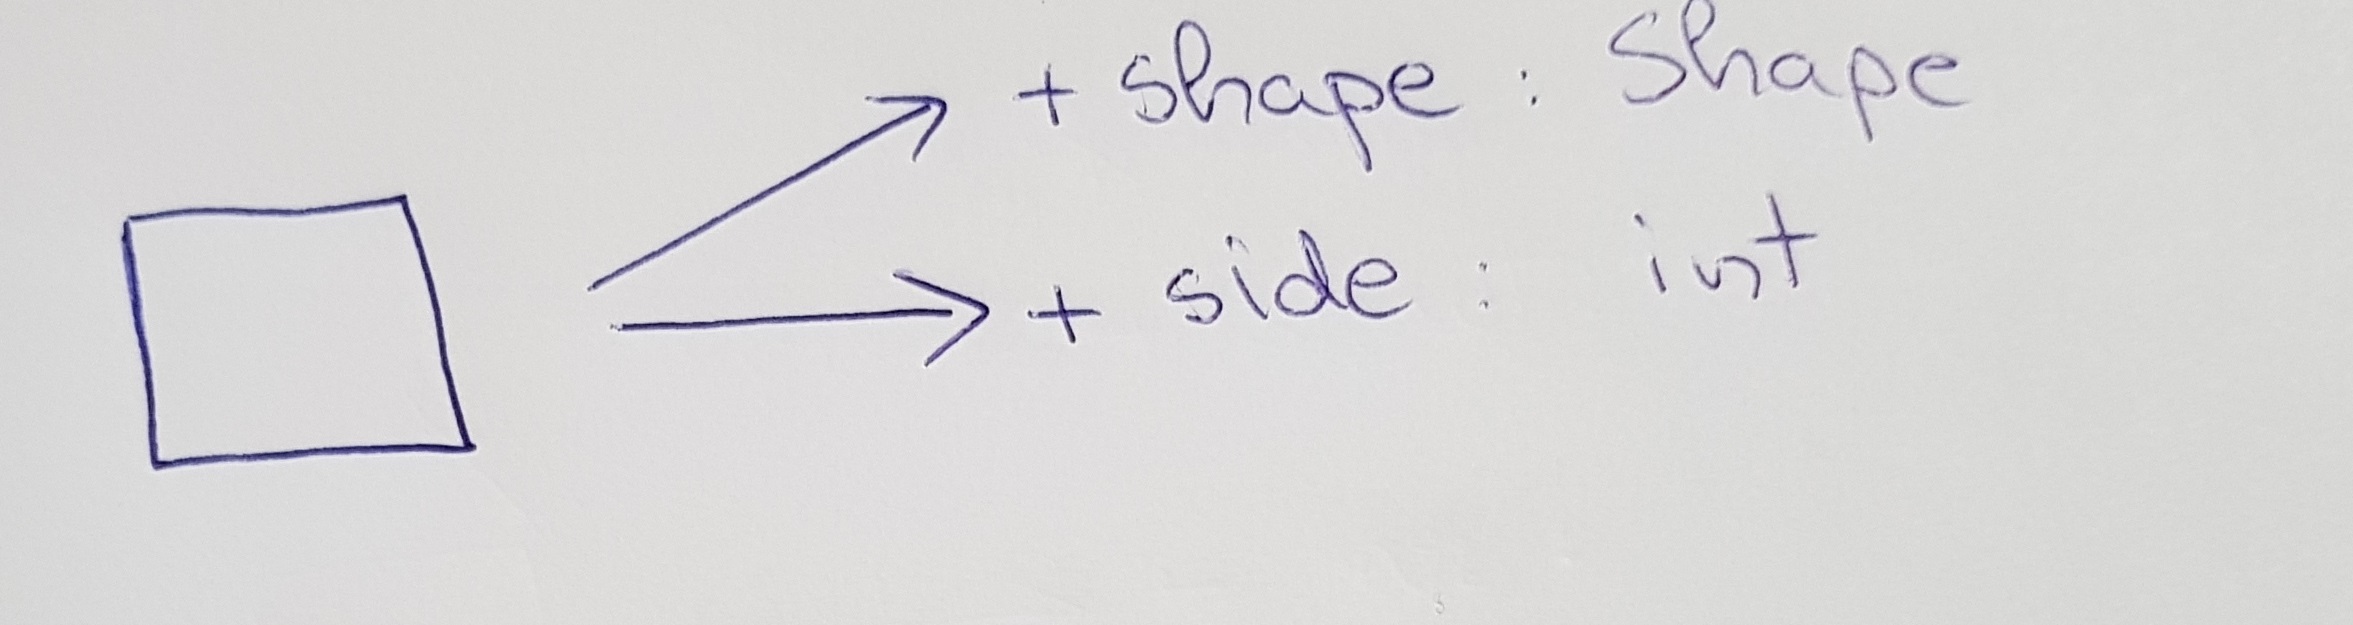 + shape : Shape
+ side : int